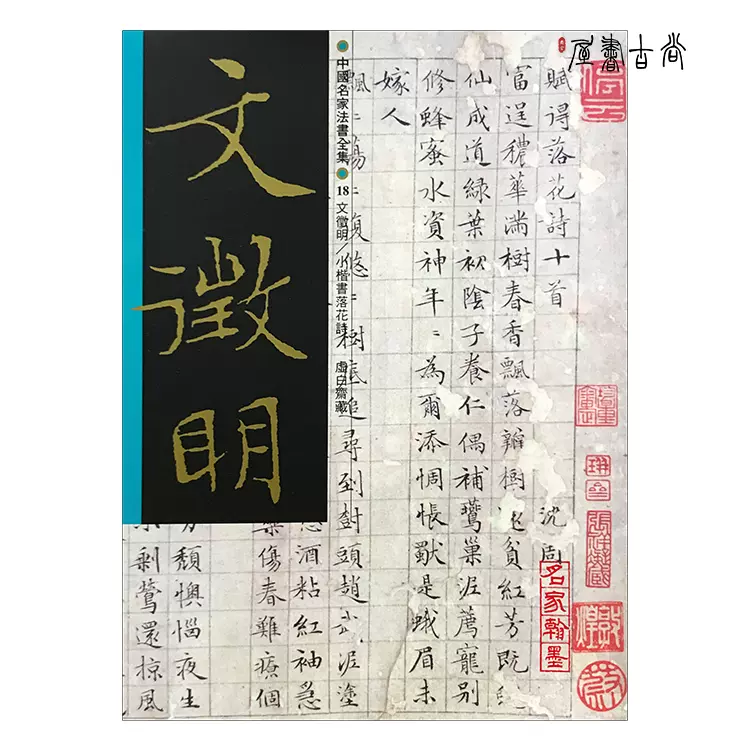 尚古書屋
文徵明
中國名家法書全集
18 文徵明/小楷書落花詩 虛白齋藏
賦得落花詩十首
沈周
富逞穠華滿樹春香飄落瓣樹還貧紅芳既
仙成道綠葉初陰子養仁偶補鶯巢泥薦寵別
修蜂蜜水資神年〻為爾添惆悵猒是蛾眉未
嫁人
飄〻蕩〻復悠〻樹底追尋到樹頭趙武泥塗
酒粘紅袖急
藥傷春難療個
頹懊惱夜生
剩鶯還掠風
名家翰墨